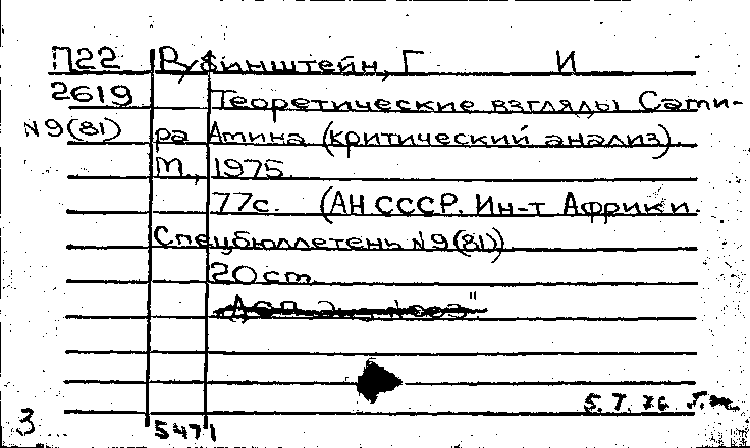 П22 Рубинштейн, Г И
2619 Теоретические взгляды Сами-
N9(81) ра Амина (критический анализ).
М., 1975.
77с. (АН СССР. Ин-т Африки.
Спецбюллетень N9(81))
20см
5.7.76
3
5471